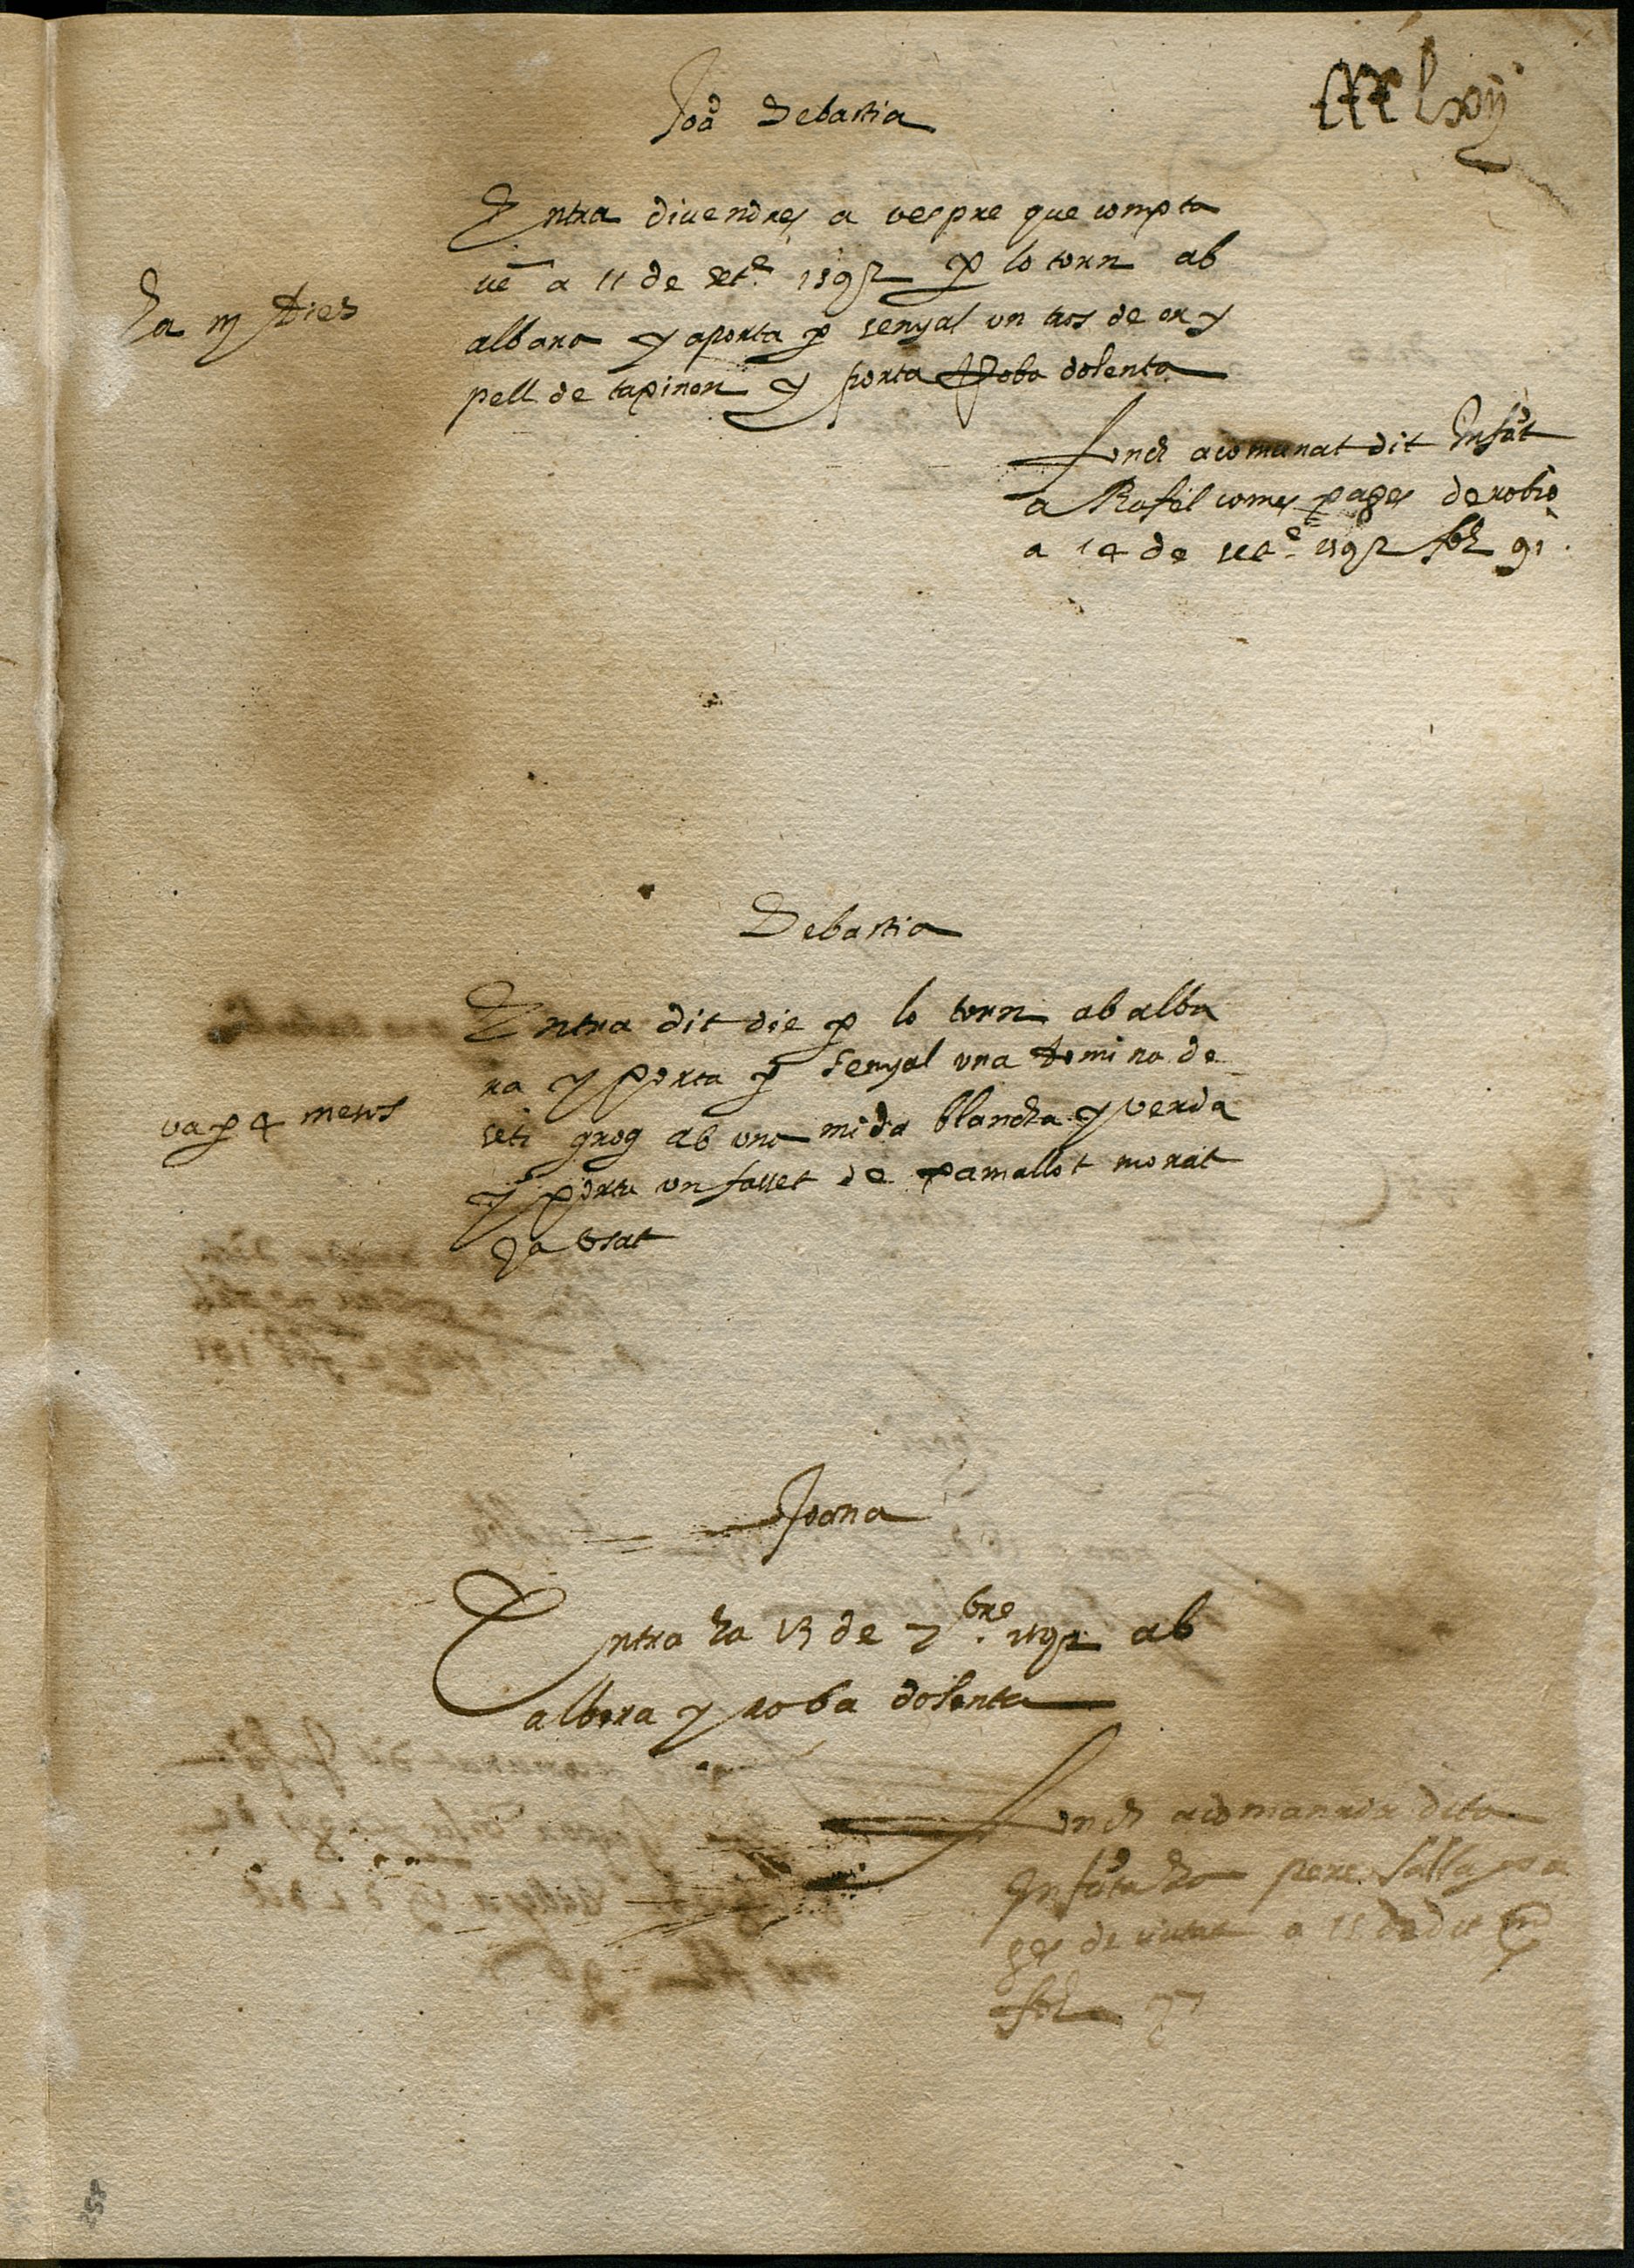 Joā Sebastia
Entra diuendres a vespre que compta
uē a 11 de setᵉ 1592 p lo torn ab
albara y aporta p senyal un tros de or y
pell de tapineri y porta Roba dolenta
ha m dies
fonch acomanat dit Infāt
a Rafel comes pages de
a 14 de setᵉ 1592 fol 91
Sebastia
Entra dit die p lo torn ab alba
ra y porta p senyal una de
seti grog ab una mida blancha y verda
y porta un faxet de pamallot morat
ja usat
va p 4 mesos
Joana
Entra ha 13 de 7bre 1592 ab
albera y roba dolenta
fonch acomanada dita
Infāta ha pere salla pa
ges de a 15 de dit
fol